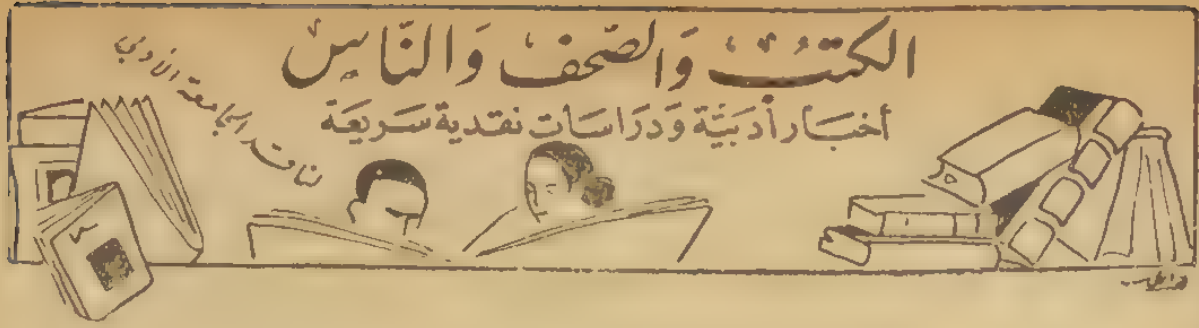 الكتبُ وَالصّحف وَالنّاسْ
أخبَار أدبيّة وَدرَاسَات نقدية سَريعَة
لناقد الجامعة الأدبي